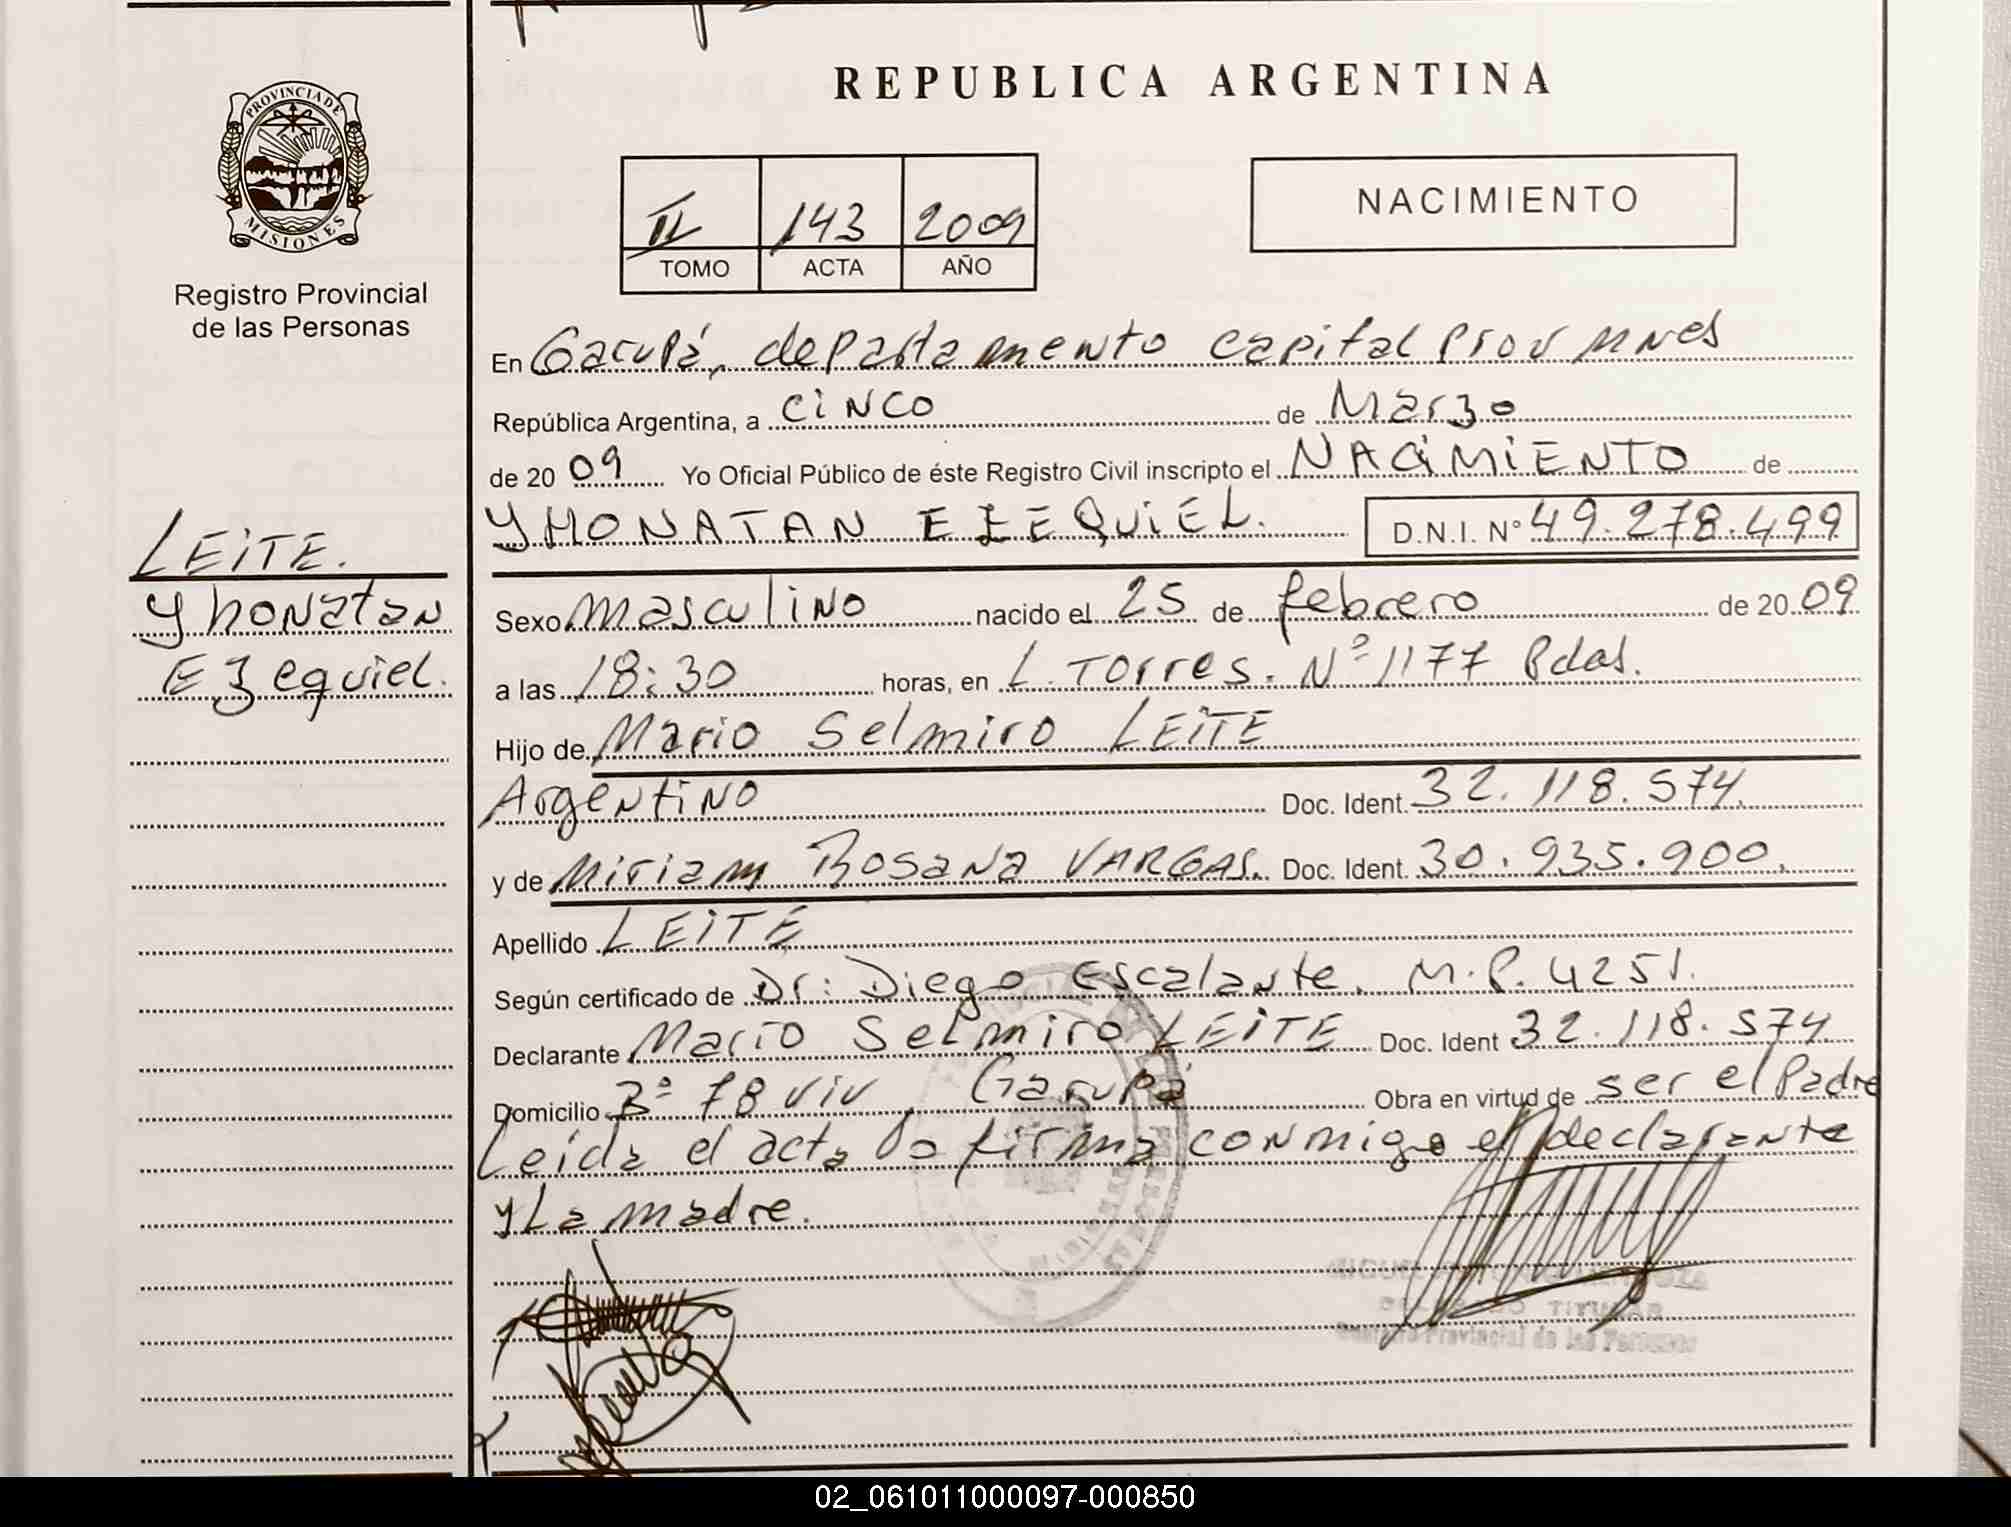 REPUBLICA ARGENTINA
PROVINCIA DE
MISIONES
Registro Provincial
de las Personas
II 143 2009
TOMO ACTA AÑO
NACIMIENTO
En Garupá, departamento capital Prov Mnes
República Argentina, a cinco de Marzo
de 2009 Yo Oficial Público de éste Registro Civil inscripto el NACIMIENTO de
YHONATAN EZEQUIEL. D.N.I. Nº 49.278.499
LEITE.
Yhonatan
Ezequiel.
Sexo masculino nacido el 25 de febrero de 2009
a las 18:30 horas, en L. Torres. Nº 1177 Pdas.
Hijo de Mario Selmiro LEITE
Argentino Doc. Ident. 32.118.574.
y de Miriam Rosana VARGAS. Doc. Ident. 30.935.900.
Apellido LEITE
Según certificado de Dr: Diego Escalante. M.P. 4251.
Declarante Mario Selmiro LEITE Doc. Ident 32.118.574
Domicilio 3ª 78 viv, Garupá Obra en virtud de ser el Padre
Leída el acta la firma conmigo el declarante
y La madre.
TITULAR
Registro Provincial de las Personas
02_061011000097-000850